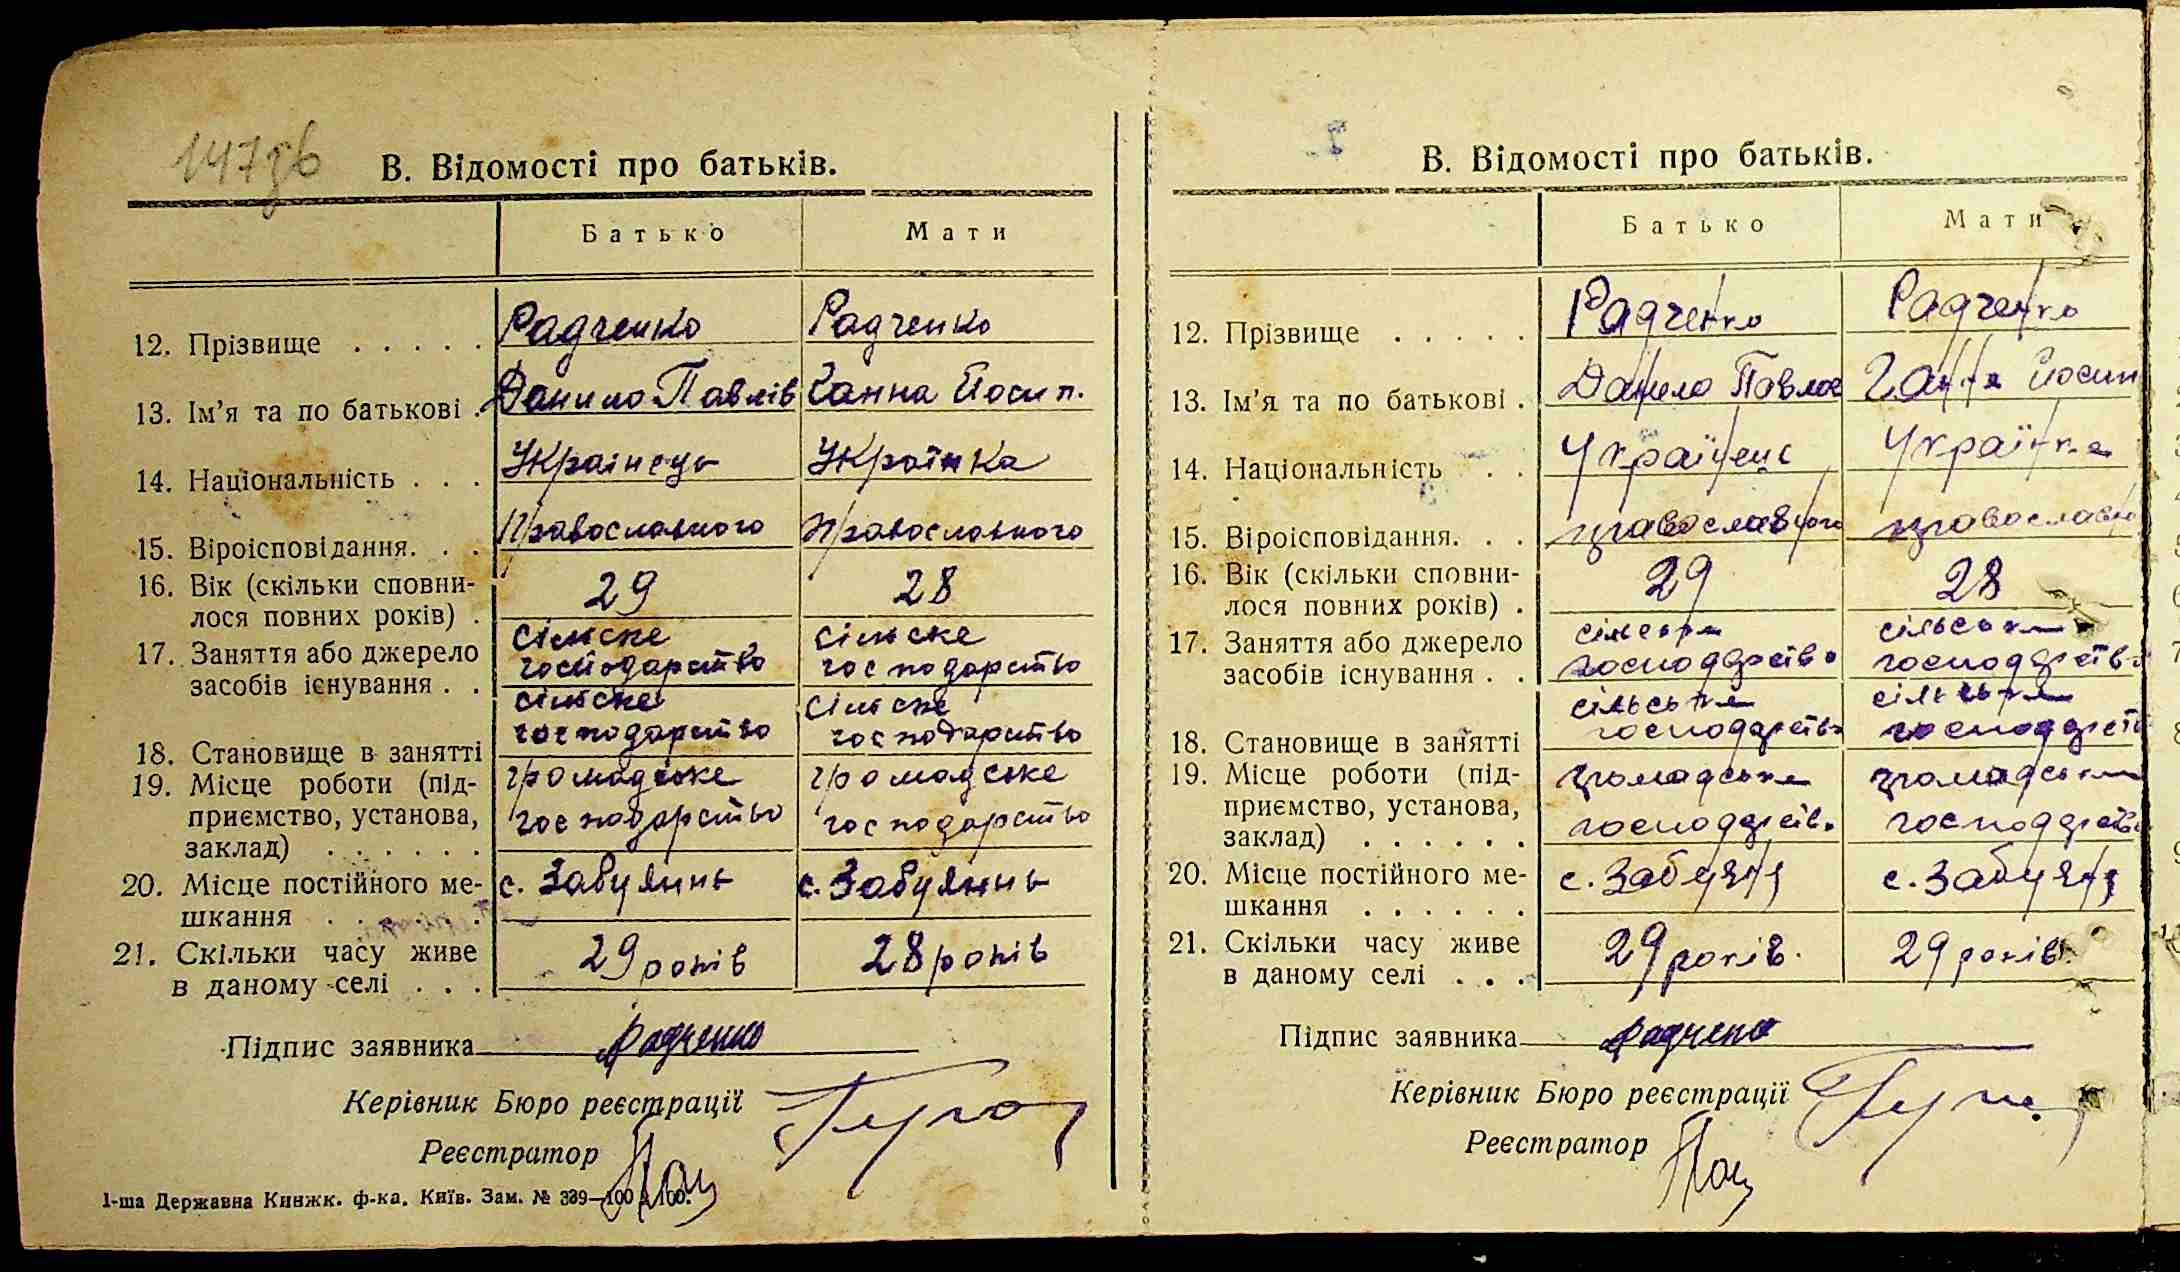 147зв
В. Відомості про батьків.
Батько Мати
12. Прізвище . . . . . Радченко Радченко
13. Ім’я та по батькові . Данило Павлів Ганна Йосип.
14. Національність . . . Украінець Українка
15. Віроісповідання. . . Православного Православного
16. Вік (скільки сповни-
лося повних років) . 29 28
17. Заняття або джерело сільське сільське
засобів існування . . господарство господарство
сільске сільске
18. Становище в занятті господарство господарство
19. Місце роботи (під- громадське громадське
приємство, установа, господарство господарство
заклад) . . . . . .
20. Місце постійного ме- с. Забуяннь с. Забуяннь
шкання . . . . . .
21. Скільки часу живе 29 років 28 років
в даному селі . . .
Підпис заявника Радченко
Керівник Бюро реєстрації
Реєстратор
1-ша Державна Книжк. ф-ка. Київ. Зам. № 339—100 100.
В. Відомості про батьків.
Батько Мати
12. Прізвище . . . . . Радченко Радченко
13. Ім’я та по батькові . Данело Павлов Ганна Йосип
14. Національність . . Українец Українка
15. Віроісповідання. . . православного православно
16. Вік (скільки сповни-
лося повних років) . 29 28
17. Заняття або джерело сільське сільське
засобів існування . . господарство господарство
сільське сільське
18. Становище в занятті господарство господарств
19. Місце роботи (під- громадське громадське
приємство, установа, господарство господарство
заклад) . . . . . .
20. Місце постійного ме- с. Забуяня с. Забуяня
шкання . . . . . .
21. Скільки часу живе 29 років. 29 років.
в даному селі . . .
Підпис заявника Радченко
Керівник Бюро реєстрації
Реєстратор